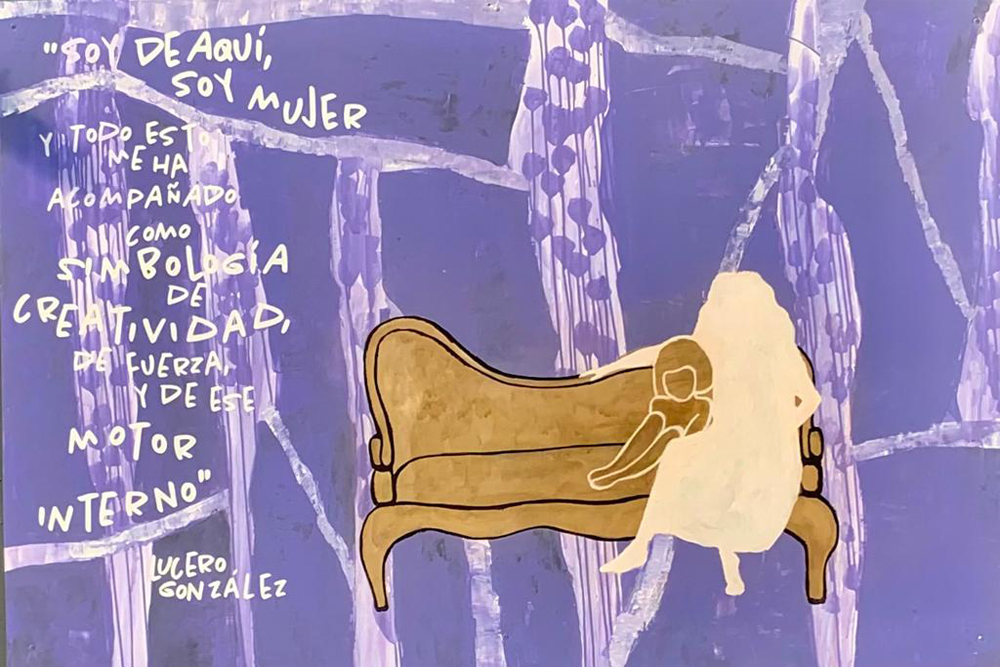 "SOY DE AQUÍ,
SOY MUJER
Y TODO ESTO
ME HA
ACOMPAÑADO
COMO
SIMBOLOGÍA
DE
CREATIVIDAD,
DE FUERZA,
Y DE ESE
MOTOR
INTERNO"
LUCERO
GONZÁLEZ